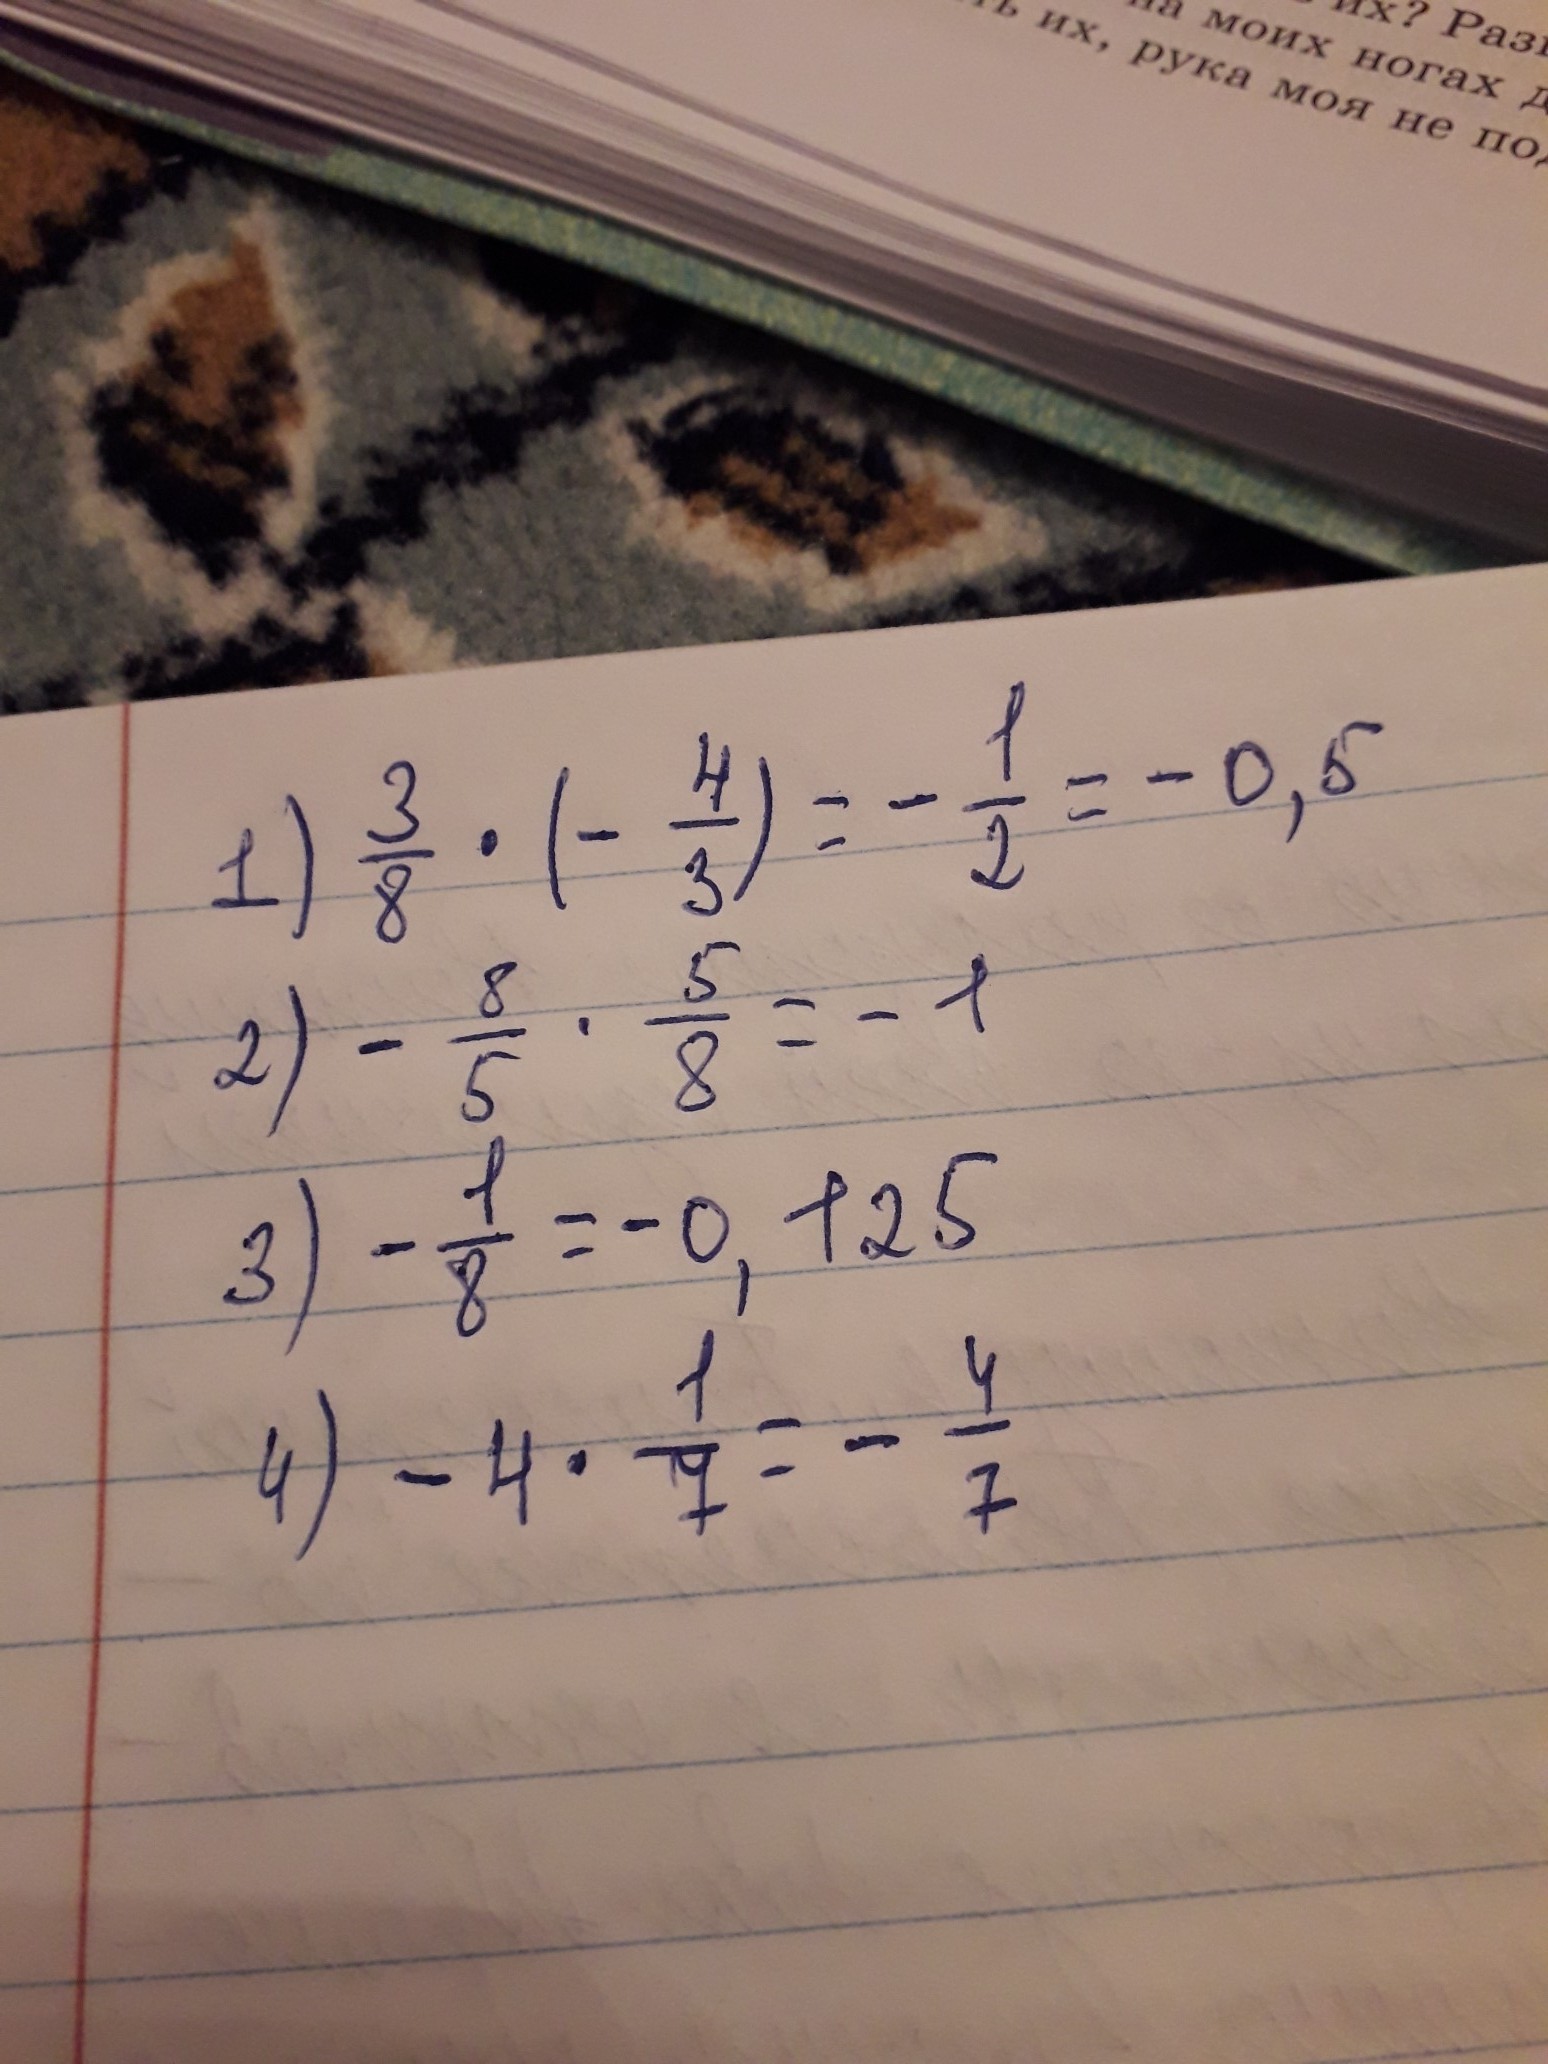 их? Разв
на моих ногах д
ть их, рука моя не под
1) 3/8 · (- 4/3) = - 1/2 = - 0,5
2) - 8/5 · 5/8 = - 1
3) - 1/8 = - 0,125
4) - 4 · 1/7 = - 4/7